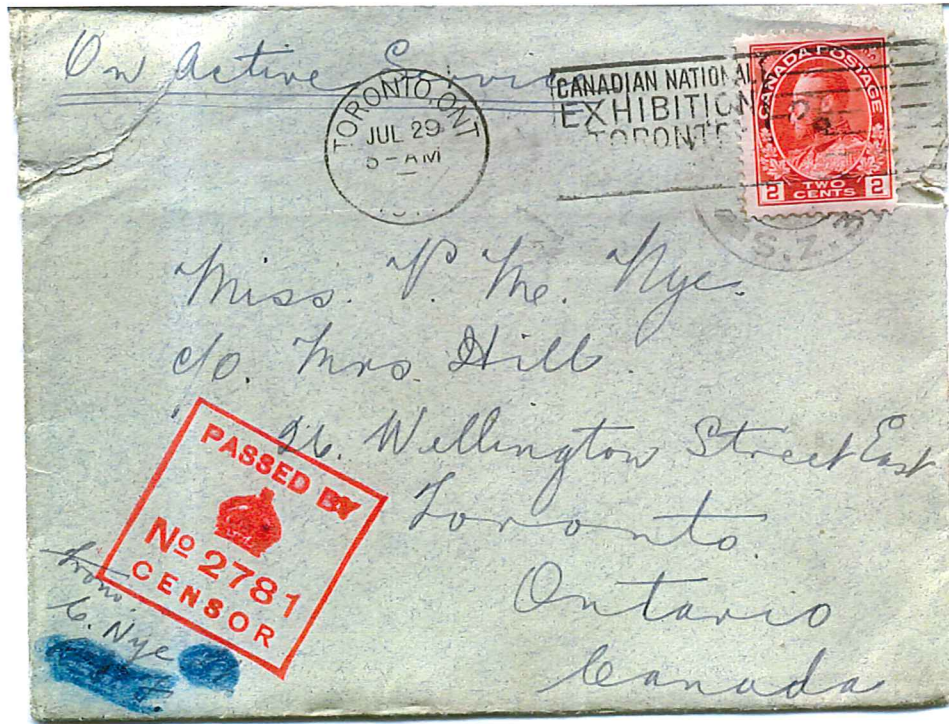 On Active Service
TORONTO, ONT
JUL 29
AM
CANADIAN NATIONAL
EXHIBITION
TORONTO
CANADA POSTAGE
2 TWO CENTS 2
S.Z.
Miss. P. Me. Nye.
c/o. Mrs. Hill.
26. Wellington Street East
Toronto.
Ontario
Canada
PASSED BY
No 2781
CENSOR
From.
C. Nye